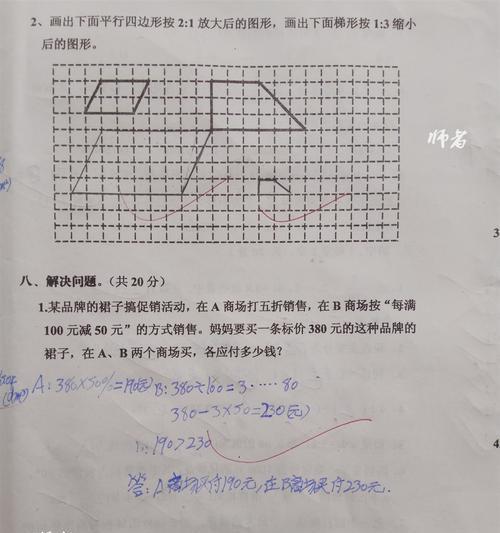 2、画出下面平行四边形按 2:1 放大后的图形，画出下面梯形按 1:3 缩小
后的图形。
师者
3
八、解决问题。（共 20 分）
1.某品牌的裙子搞促销活动，在 A 商场打五折销售，在 B 商场按“每满
100 元减 50 元”的方式销售。妈妈要买一条标价 380 元的这种品牌的
裙子，在 A、B 两个商场买，各应付多少钱？
A：380×50%=190(元) B：380÷100=3……80
380-3×50=230(元)
190>230
4
答：A商场买付190元，在B商场买付230元.